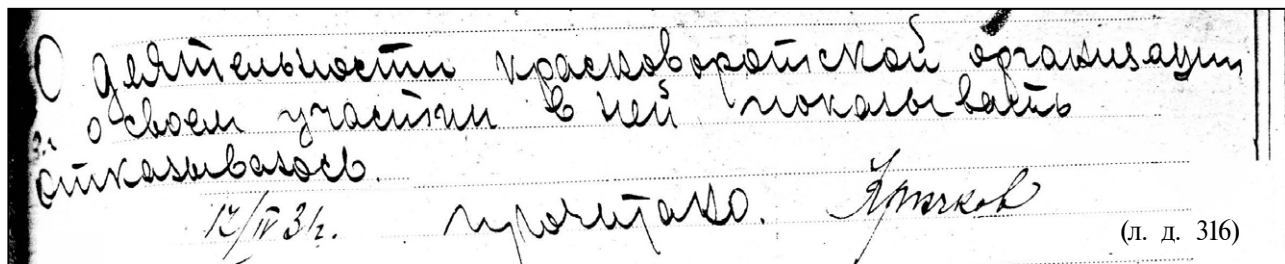 О деятельности красноворотской организации
о своем участии в ней показывать
отказываюсь.
17/IV 31. прочитано. Крючков
(л. д. 316)